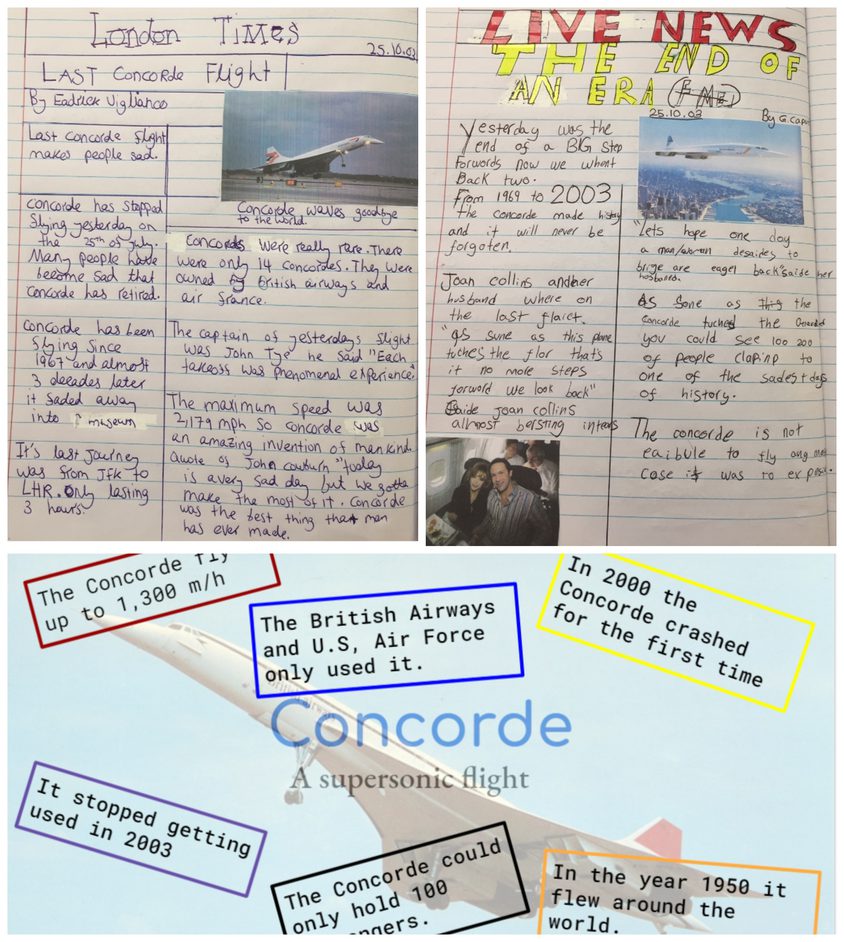 London Times
25.10.03
Last Concorde Flight
By Eadrick Viglianco
Last Concorde flight
makes people sad.
Concorde waves goodbye
to the world.
Concorde has stopped
flying yesterday on
the 25th of july.
Many people have
become sad that
Concorde has retired.
Concorde has been
flying since
1967 and almost
3 decades later
it faded away
into a museum
It's last journey
was from Jfk to
LHR. Only lasting
3 hours.
Concordes were really rare. There
were only 14 concordes. They were
owned by british airways and
air france.
The captain of yesterdays flight
was John Tye he said "Each
takeoff was phenomenal experience."
The maximum speed was
2,179 mph so concorde was
an amazing invention of man kind.
Quote of John "today
is a very sad day but we gotta
make the most of it. Concorde
was the best thing that man
has ever made.
LIVE NEWS
THE END OF
AN ERA
25.10.03
By G.
Yesterday was the
end of a BIG step
forwords now we whent
Back two.
From 1969 to 2003
the concorde made histoy
and it will never be
forgoten.
Joan collins andher
husband where on
the last flaict.
"as sune as this plane
tuches the flor that's
it no more steps
forword we look back"
Saide joan collins
almost bersting in tears
"Lets hope one day
a man/woman desaides to
bring are eagel back" saide her
hosband.
As Sone as this the
Concorde tuched the
you could see 100 200
of people claping to
one of the sadest days
of history.
The concorde is not
eaibule to fly any more
Case it was to exposi.
The Concorde fly
up to 1,300 m/h
The British Airways
and U.S, Air Force
only used it.
In 2000 the
Concorde crashed
for the first time
Concorde
A supersonic flight
It stopped getting
used in 2003
The Concorde could
only hold 100
In the year 1950 it
flew around the
world.